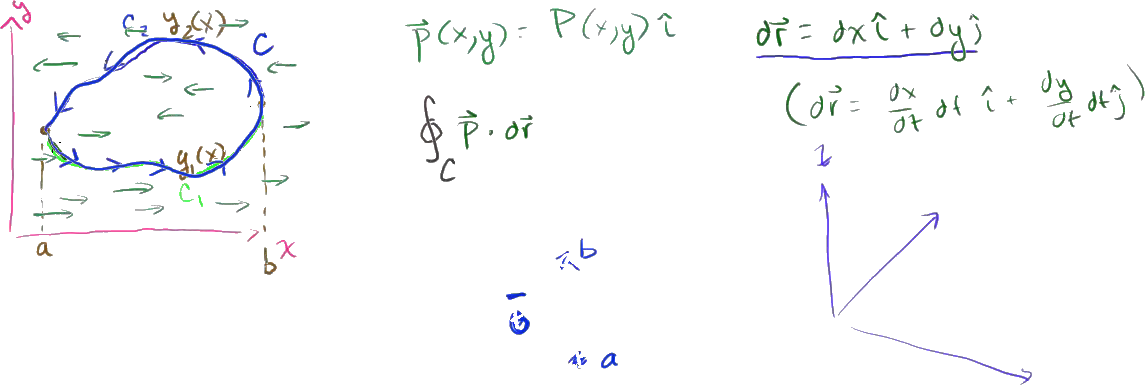 y
C₂ y₂(x)
C
y₁(x)
C₁
a
b
x
p⃗(x,y) = P(x,y) î
∮_C p⃗ · dr⃗
dr⃗ = dx î + dy ĵ
(dr⃗ = dx/dt dt î + dy/dt dt ĵ)
z
b
a